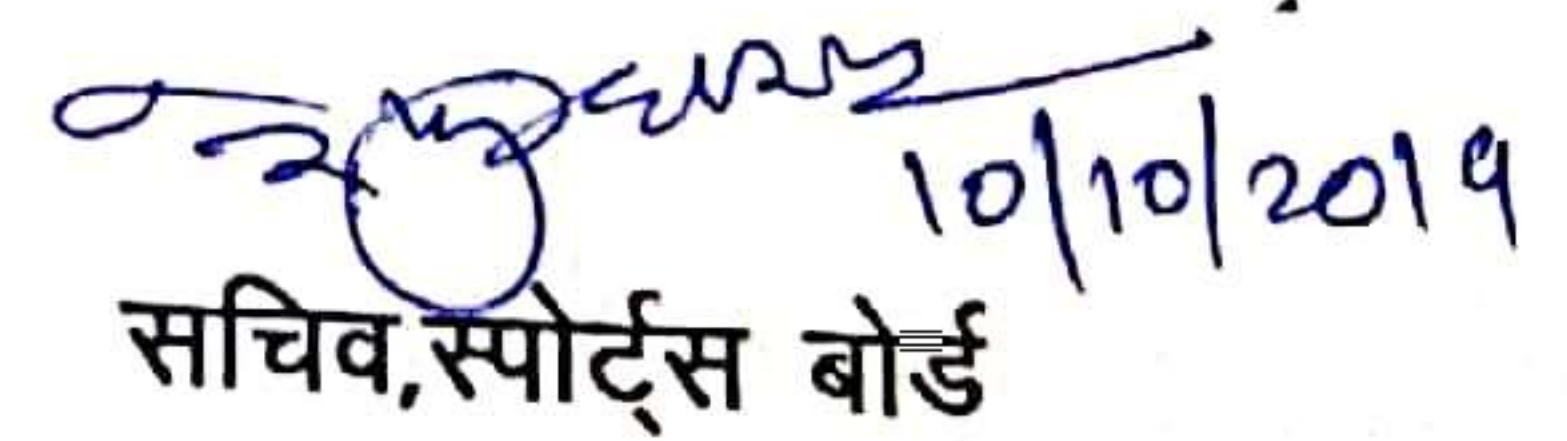 10/10/2019
सचिव,स्पोर्ट्स बोर्ड